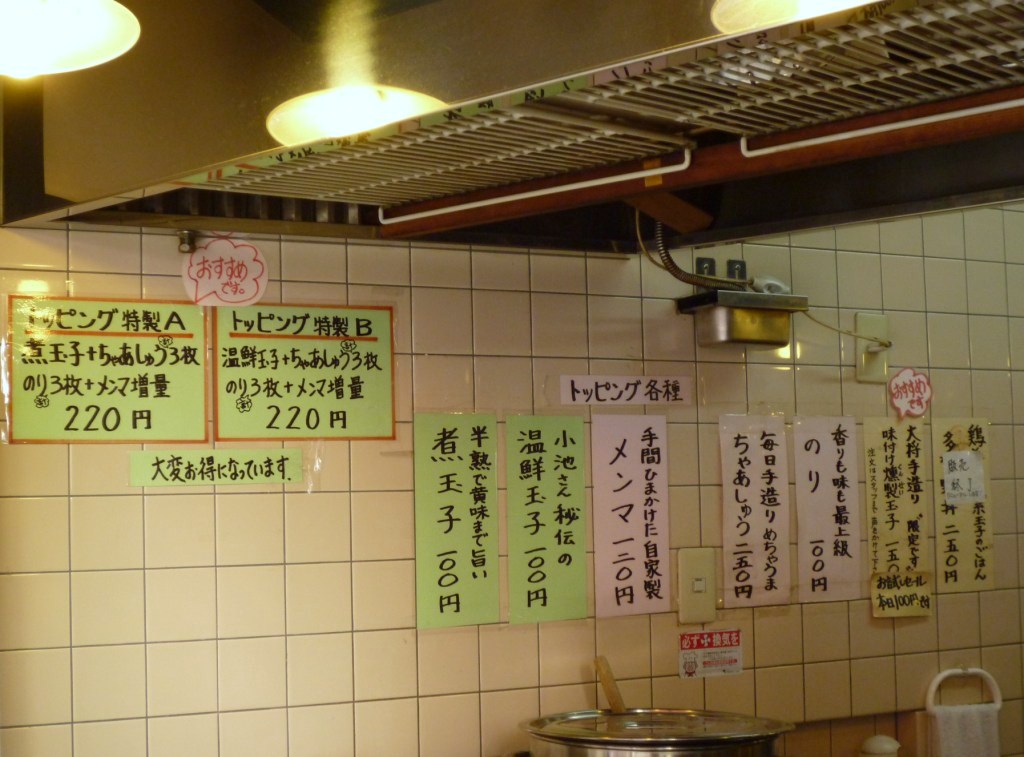 おすすめ
です。
トッピング 特製A
煮玉子+ちゃあしゅう3枚
のり3枚+メンマ増量
220円
トッピング 特製B
温鮮玉子+ちゃあしゅう3枚
のり3枚+メンマ増量
220円
大変お得になっています.
トッピング 各種
半熟で黄味まで旨い
煮玉子 一〇〇円
小池さん秘伝の
温鮮玉子 一〇〇円
手間ひまかけた自家製
メンマ 一二〇円
毎日手造りめちゃうま
ちゃあしゅう 二五〇円
香りも味も最上級
のり 一〇〇円
おすすめ
です
大将手造り "限定です"
味付け燻製玉子 一五〇
お試しセール
本日100円
鶏
玉子のごはん
二五〇円
必ず換気を